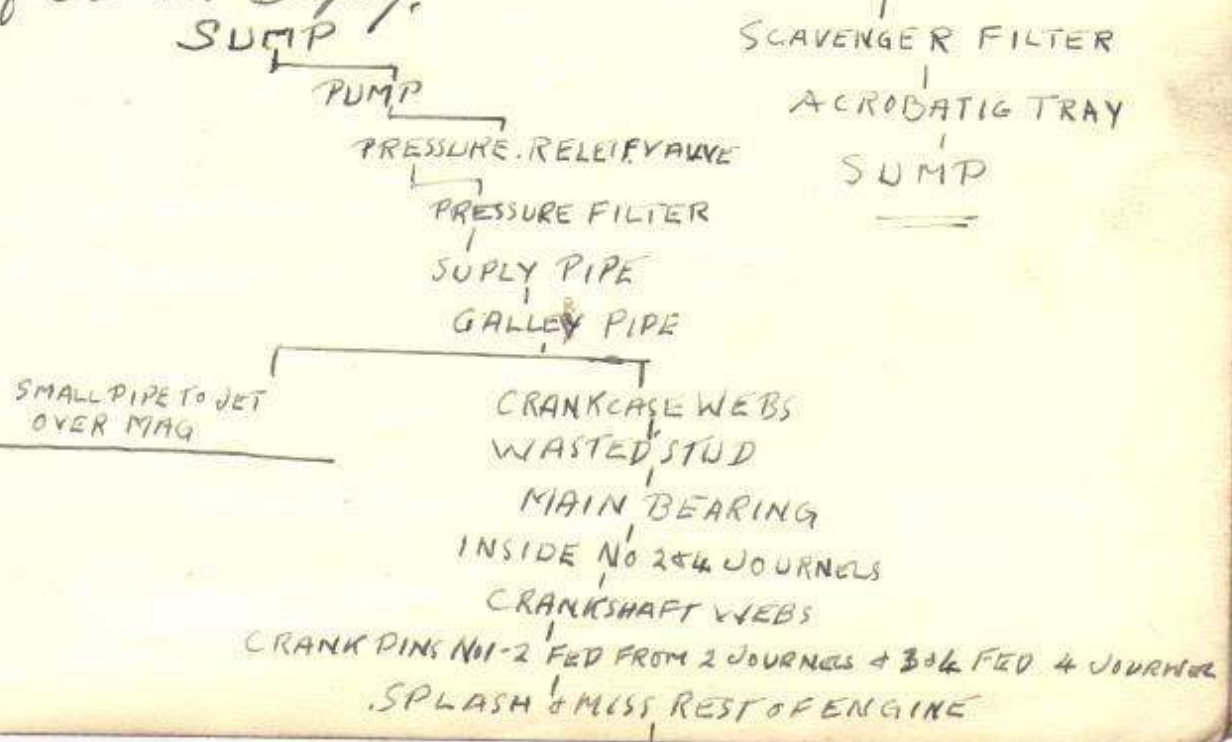 SUMP
PUMP
PRESSURE. RELEIF VALVE
PRESSURE FILTER
SUPLY PIPE
GALLEY PIPE
SMALL PIPE TO JET
OVER MAG
CRANKCASE WEBS
WASTED STUD
MAIN BEARING
INSIDE NO 2 & 4 JOURNELS
CRANKSHAFT WEBS
CRANK PINS NO1-2 FED FROM 2 JOURNELS & 3&4 FED 4 JOURNEL
.SPLASH & MISS REST OF ENGINE
SCAVENGER FILTER
ACROBATIG TRAY
SUMP